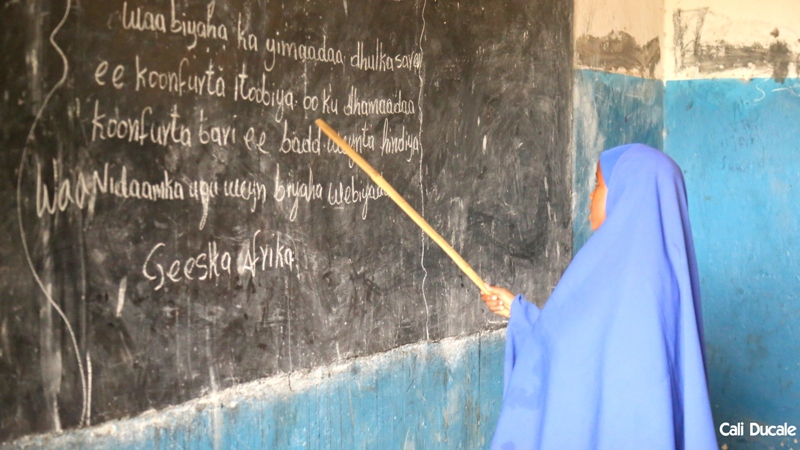 waa biyaha ka yimaadaa dhulkasare
ee koonfurta itoobiya oo ku dhamaadaa
koonfurta bari ee badd weynta hindiya
Waa Nidaamka ugu weyn biyaha webiyada
Geeska Afrika.
Cali Ducale